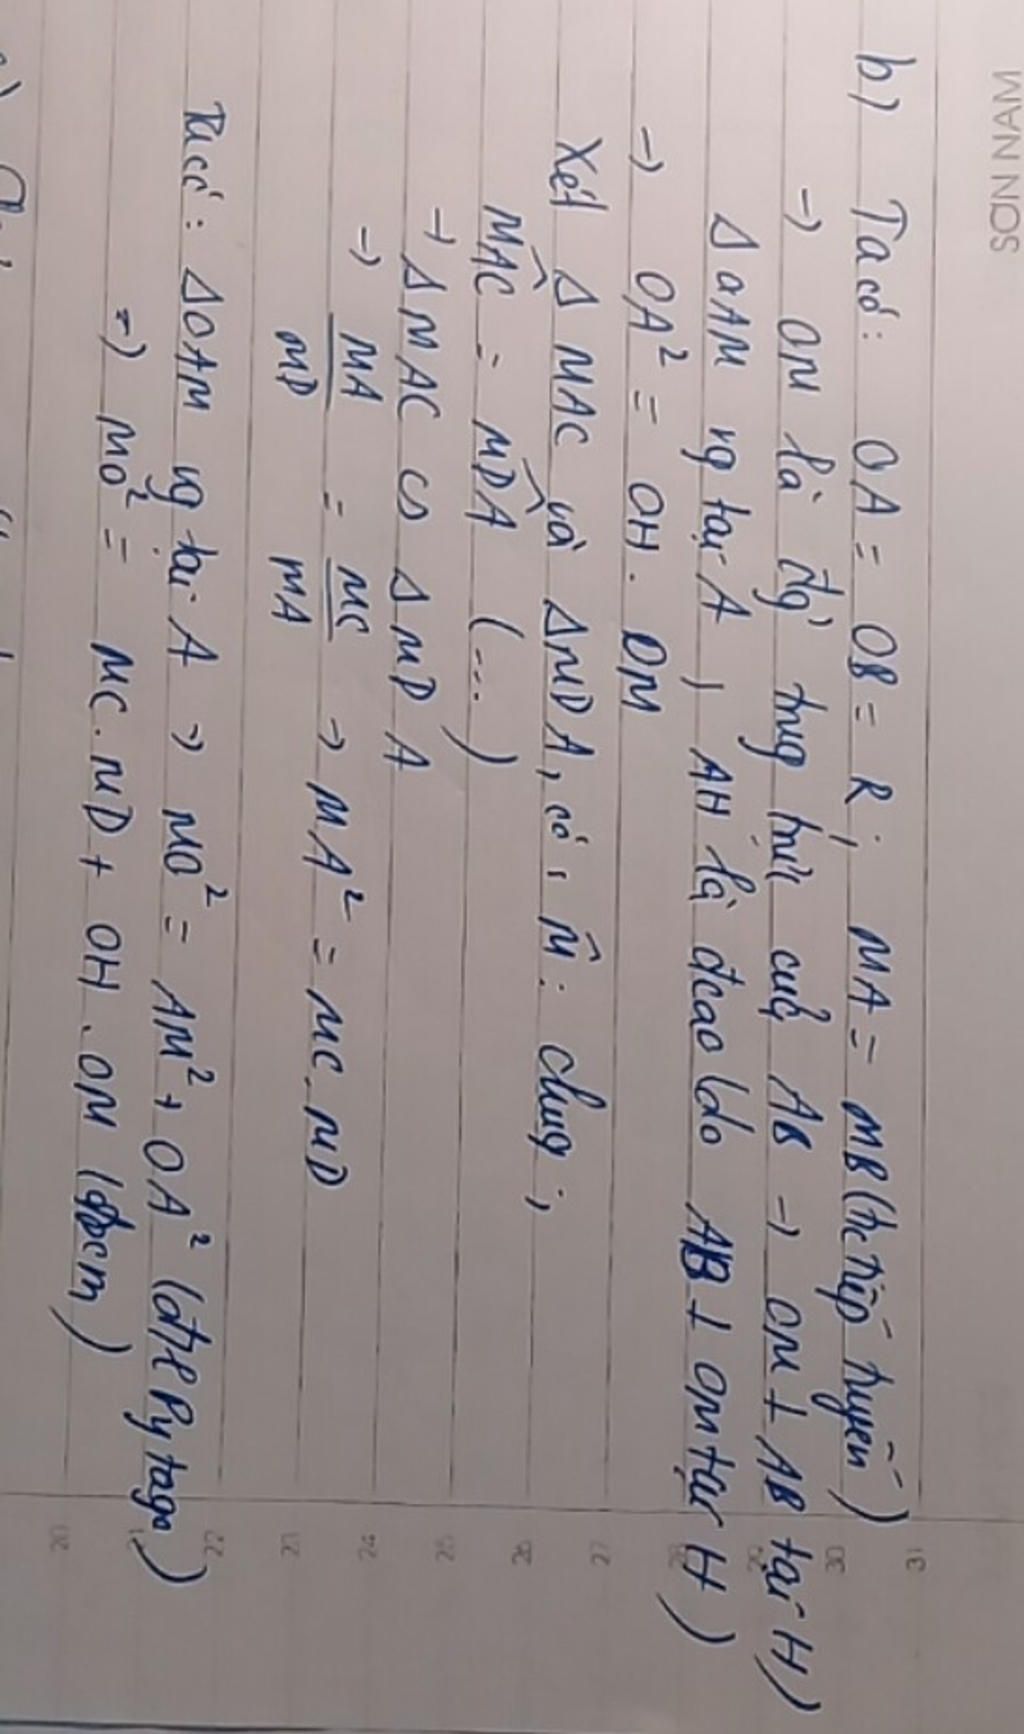 SƠN NAM
b) Ta có: OA = OB = R; MA = MB (t/c tiếp tuyến)
→ OM là đg trug trực cuả AB → OM ⊥ AB tại H)
Δ OAM vg tại A, AH là đcao (do AB ⊥ OM tại H)
→ OA² = OH. OM
Xét Δ MAC và ΔMDA, có, M̂: chug;
M̂AC = M̂DA (...)
→ ΔMAC ∽ ΔMDA
→ MA/MD = MC/MA → MA² = MC. MD
Ta có: ΔOAM vg tại A → MO² = AM² + OA² (đ/l Pytago)
=) MO² = MC. MD + OH. OM (đpcm)
31
30
29
28
27
26
25
24
23
22
21
20